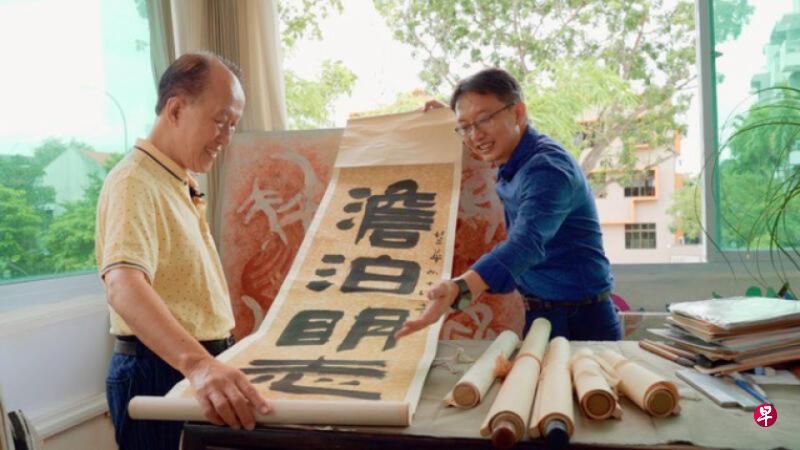 澹泊明志
早